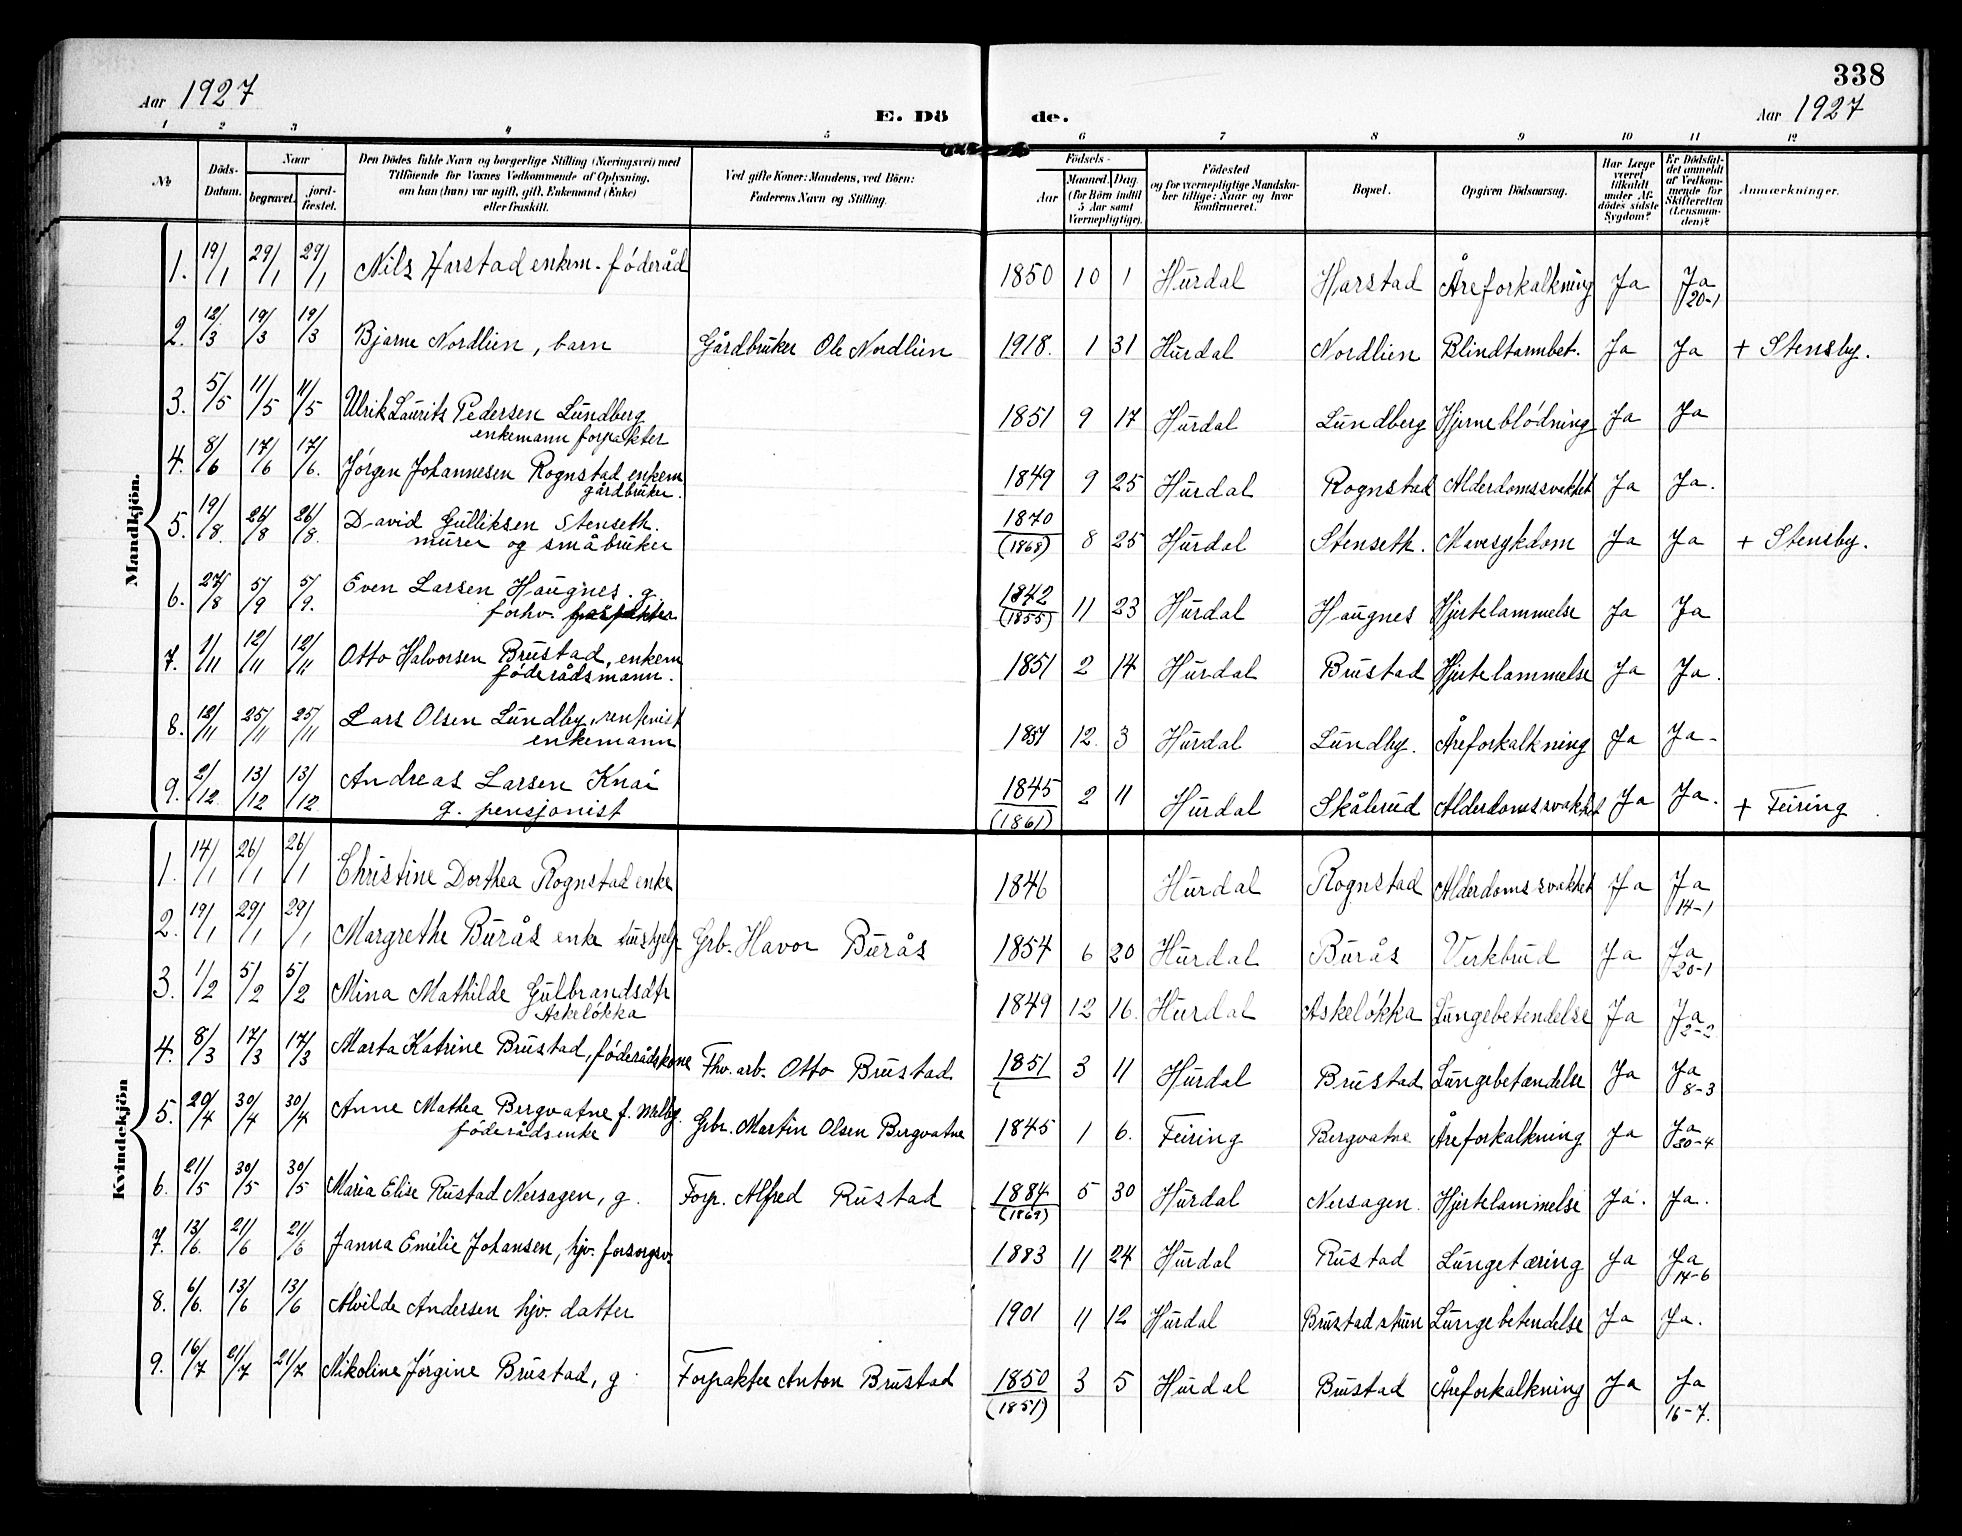 338
Aar 1927
E. Dö
de.
Aar 1927
1 2 3 4 5 6 7 8 9 10 11 12
No
Döds-Datum.
Naar
begravet.
jord-fæstet.
Den Dödes fulde Navn og borgerlige Stilling (Næringsvei) med
Tilföiende for Voxnes Vedkommende af Oplysning,
om han (hun) var ugift, gift, Enkemand (Enke)
eller fraskilt.
Ved gifte Koner: Mandens, ved Börn:
Faderens Navn og Stilling.
Födsels-
Aar
Maaned. Dag.
(for Börn indtil
5 Aar samt
Værnepligtige).
Födested
og for værnepligtige Mandska-
ber tillige: Naar og hvor
konfirmeret.
Bopæl.
Opgiven Dödsaarsag.
Har Læge
været
tilkaldt
under Af-
dödes sidste
Sygdom?
Er Dödsfal-
det anmeldt
af Vedkom-
mende for
Skifteretten
(Lensman-
den)?
Anmærkninger.
Mandkjön.
1. 19/1 29/1 29/1 Nils Harstad enkem. föderåd 1850 10 1 Hurdal Harstad Åreforkalkning Ja Ja 20-1
2. 12/3 19/3 19/3 Bjarne Nordlien, barn Gårdbruker Ole Nordlien 1918. 1 31 Hurdal Nordlien Blindtarmbet. Ja Ja + Stensby.
3. 5/5 11/5 11/5 Ulrik Laurits Pedersen Lundberg 1851 9 17 Hurdal Lundberg Hjerneblödning Ja Ja
enkemann forpakter
4. 8/6 17/6 17/6. Jörgen Johannesen Rognstad enkem 1849 9 25 Hurdal Rognstad Alderdomssvakhet Ja Ja.
gårdbruker.
5. 19/8. 26/8 26/8. David Gulliksen Stenseth. 1870 (1868) 8 25 Hurdal Stenseth. Mavesykdom Ja Ja + Stensby.
murer og småbruker
6. 27/8 5/9 5/9. Even Larsen Haugnes. g. 1842 (1855) 11 23 Hurdal Haugnes Hjertelammelse Ja Ja
forhv.
7. 1/11 12/11 12/11 Otto Halvorsen Brustad, enkem 1851 2 14 Hurdal Brustad Hjertelammelse Ja Ja.
föderådsmann.
8. 12/11 25/11 25/11 Lars Olsen Lundby, rentenist 12. 3 Hurdal Lundby. Åreforkalkning Ja Ja-
enkemann
9. 2/12 13/12 13/12 Andreas Larsen Knai 1845 (1861) 2 11 Hurdal Skålerud Alderdomssvakhet Ja Ja. + Feiring
g. pensjonist
Kvindekjön
1. 14/1 26/1 26/1 Christine Dorthea Rognstad enke 1846 Hurdal Rognstad Alderdomssvakhet Ja Ja 14-1
2. 19/1 29/1 29/1 Margrethe Burås enke Grb. Havor Burås 1854 6 20 Hurdal Burås Verkbrud Ja Ja 20-1
3. 1/2 5/2 5/2 Mina Mathilde Gulbrandsdtr 1849 12 16. Hurdal Askelökka Lungebetendelse Ja Ja 2-2
Askelökka
4. 8/3 17/3 17/3 Marta Katrine Brustad, föderådskone Fhv. arb. Otto Brustad 1851 3 11 Hurdal Brustad Lungebetændelse Ja Ja 8-3
5. 20/4 30/4 30/4 Anne Mathea Bergvatne f. Melby. Grbr. Martin Olsen Bergvatne 1845 1 6. Feiring Bergvatne Åreforkalkning Ja Ja 30-4
föderådsenke
6. 21/5 30/5 30/5 Maria Elise Rustad Nersagen, g. Forp. Alfred Rustad 1884 (1869) 5 30 Hurdal Nersagen. Hjertelammelse Ja. Ja.
7. 13/6. 21/6 21/6 Janna Emilie Johansen, hjv. forsorgsv. 1883 11 24 Hurdal Rustad Lungetæring Ja Ja 14-6
8. 6/6. 13/6 13/6 Alvilde Andersen hjv. datter 1901 11 12 Hurdal Brustadstun Lungebetendelse Ja Ja.
9. 16/7 21/7 21/7 Nikoline Jörgine Brustad, g. Forpakter Anton Brustad 1850 (1851) 3 5 Hurdal Brustad Åreforkalkning Ja Ja 16-7.